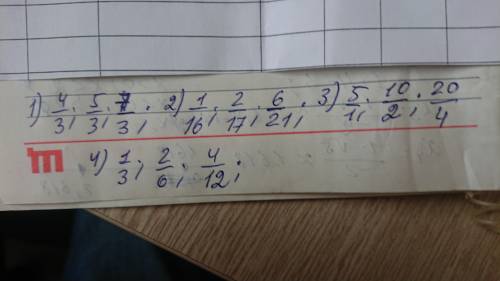 1) 4/3; 5/3; 7/3; 2) 1/16; 2/17; 6/21; 3) 5/1; 10/2; 20/4
4) 1/3; 2/6; 4/12;